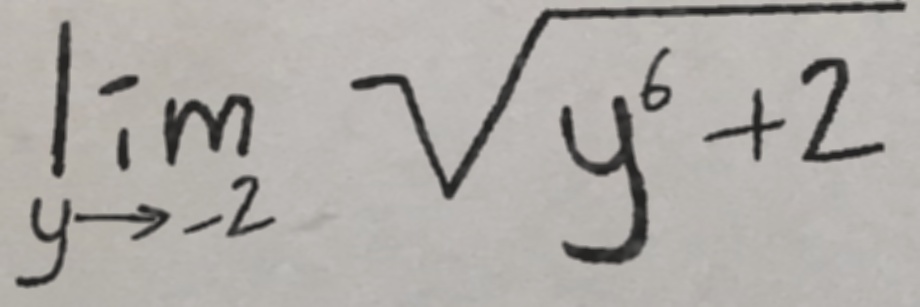 lim_{y→-2} √(y⁶+2)